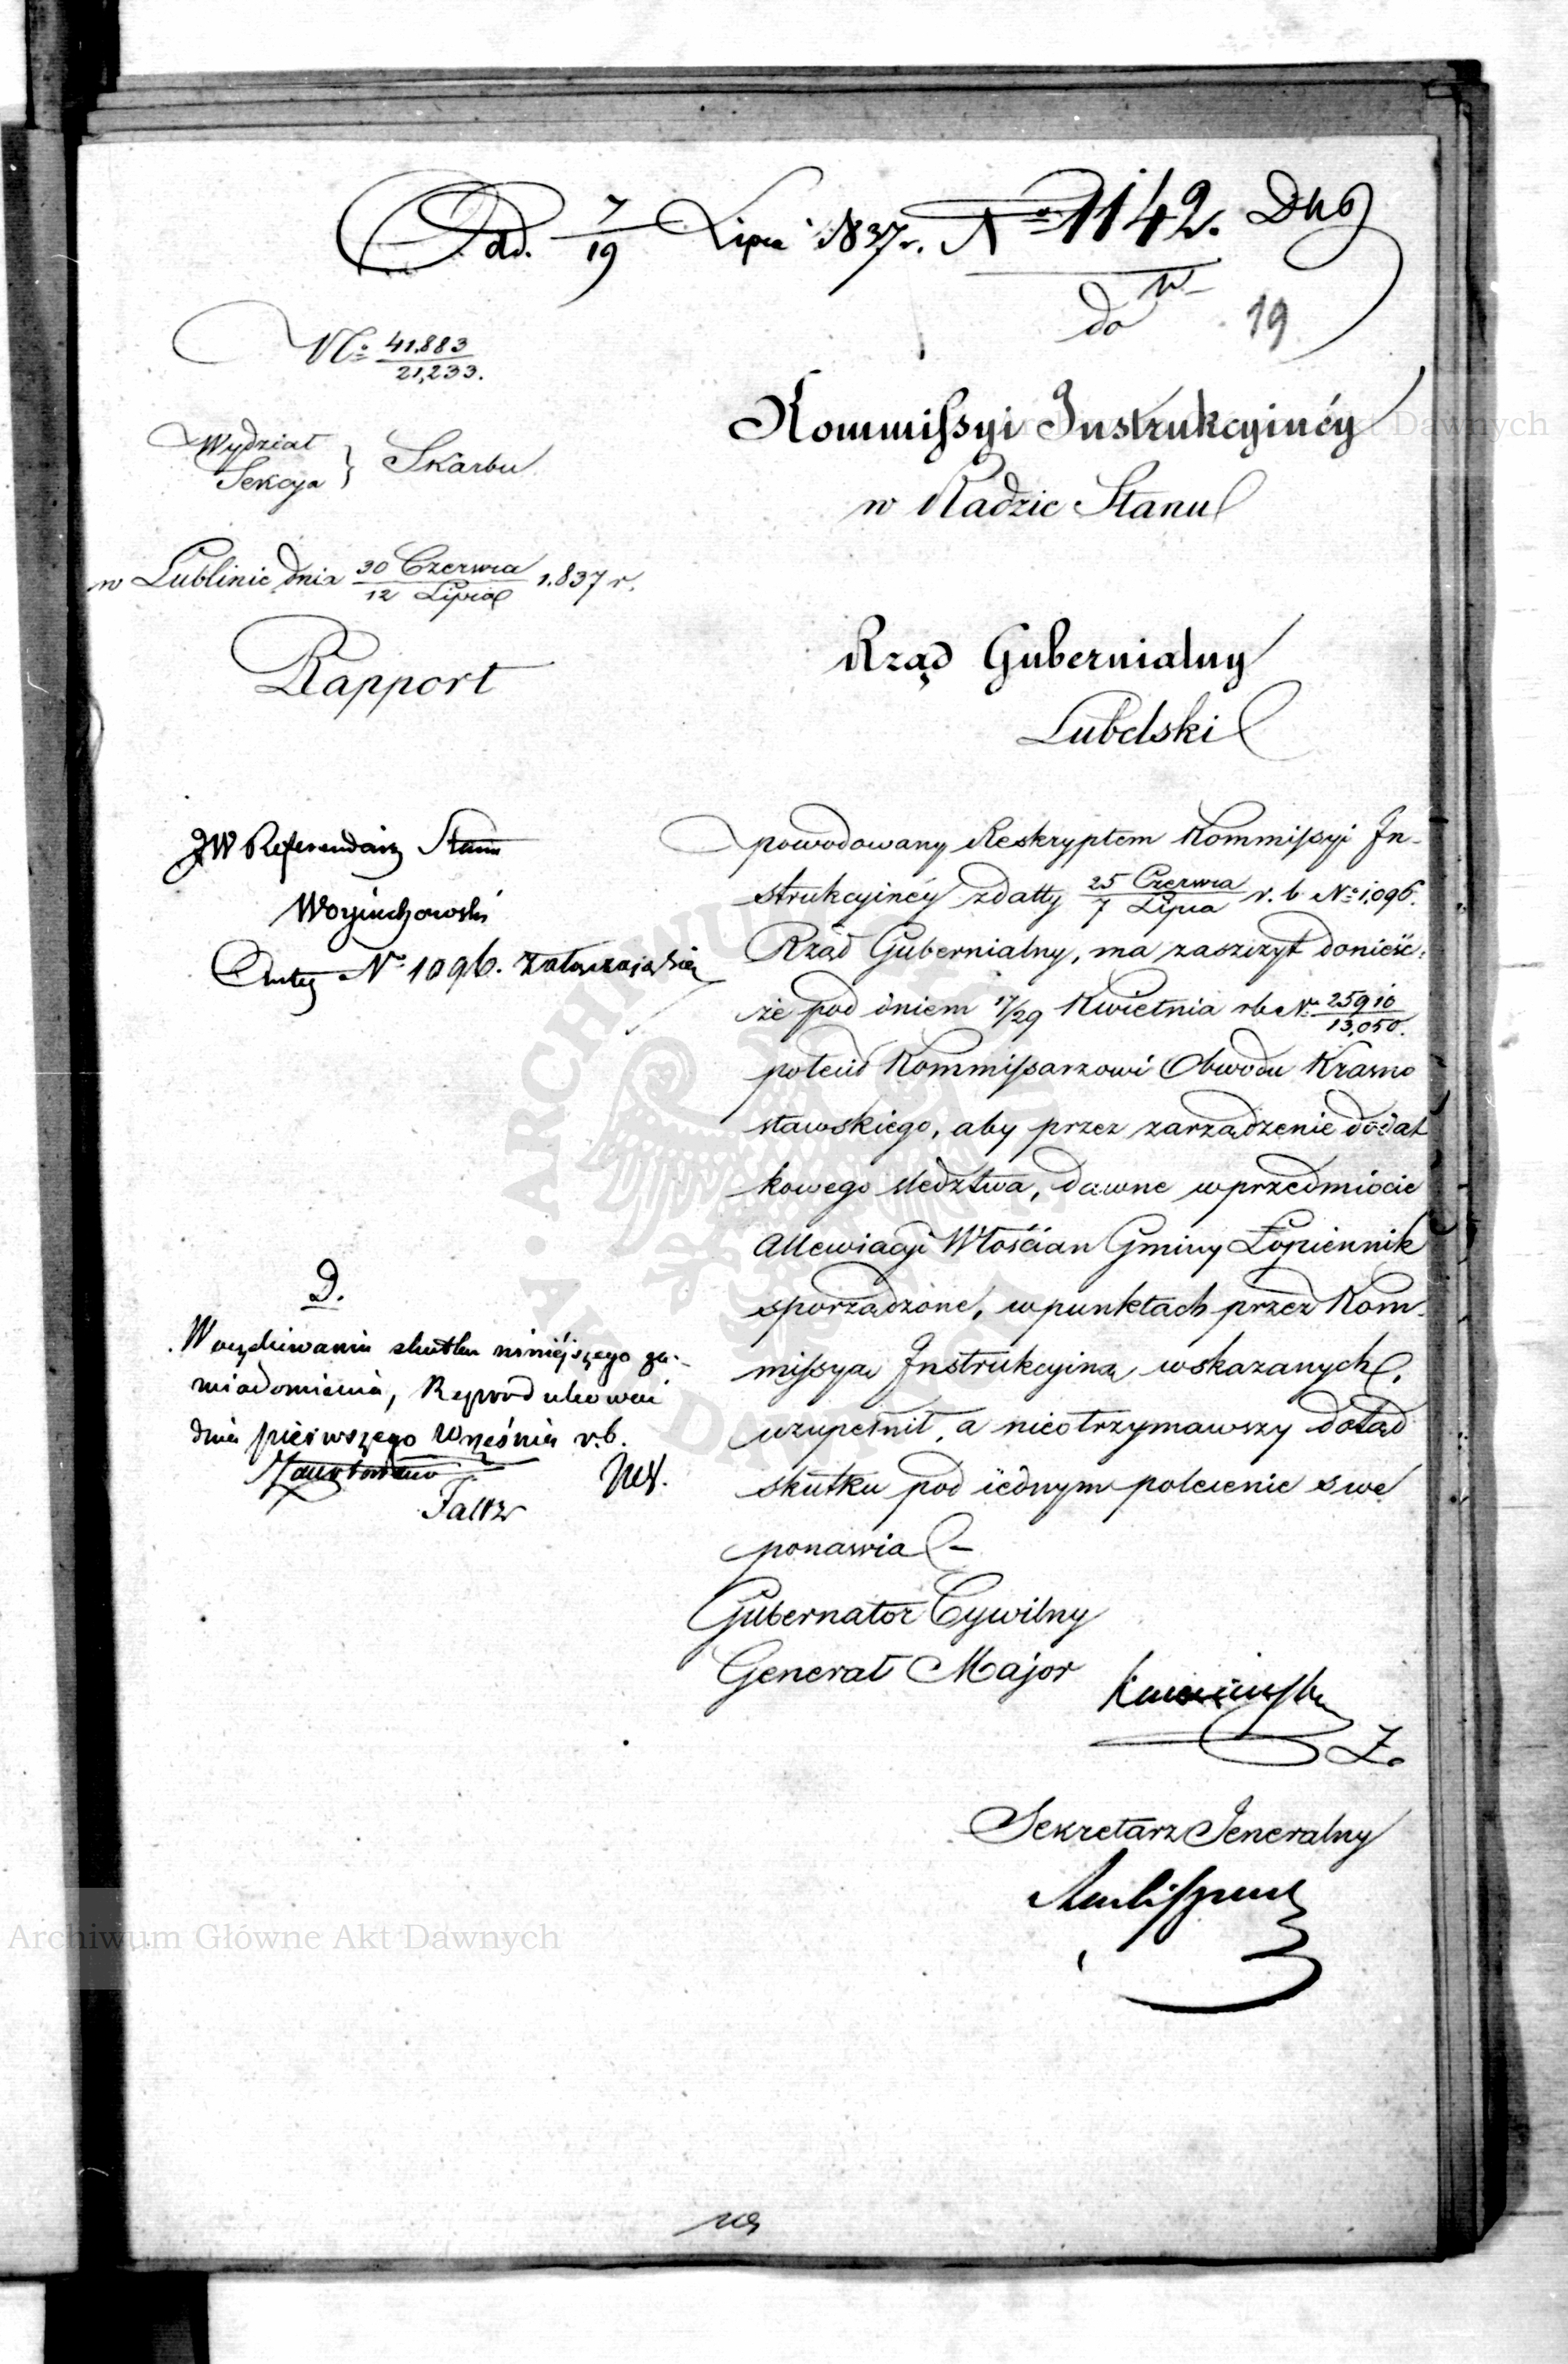 Odd. 7/19 Lipca 1837 r. No 1142. DKG
do
19
No 41.883/21,233.
Wydział
Sekcya } Skarbu
w Lublinie dnia 30 Czerwca/12 Lipca 1.837 r.
Rapport
Kommissyi Instrukcyinéy
w Radzie Stanu
Rząd Gubernialny
Lubelski
JW Referendarz Stanu
Woyciechowski
Antez No 1096. załączają się
powodowany Reskryptem Kommissyi In-
strukcyinéy z datty 25 Czerwca/7 Lipca r. b No 1,096.
Rząd Gubernialny, ma zaszczyt donieść:
że pod dniem 17/29 Kwietnia rb No 25910/13,050.
polecił Kommissarzowi Obwodu Krasno
stawskiego, aby przez zarządzenie dodat
kowego sledztwa, dawne w przedmiocie
allewiacyi Włościan Gminy Łopiennik
sporządzone, w punktach przez Kom-
missya Instrukcyiną wskazanych,
uzupełnił, a nieotrzymawszy dotąd
skutku pod iednym polecenie swe
ponawia
D.
W oczekiwaniu skutku niniejszego za-
wiadomienia, Reprodukować
dnia pierwszego Września r.b.
Faltz
Gubernator Cywilny
Generał Major
Sekretarz Jeneralny
Archiwum Główne Akt Dawnych